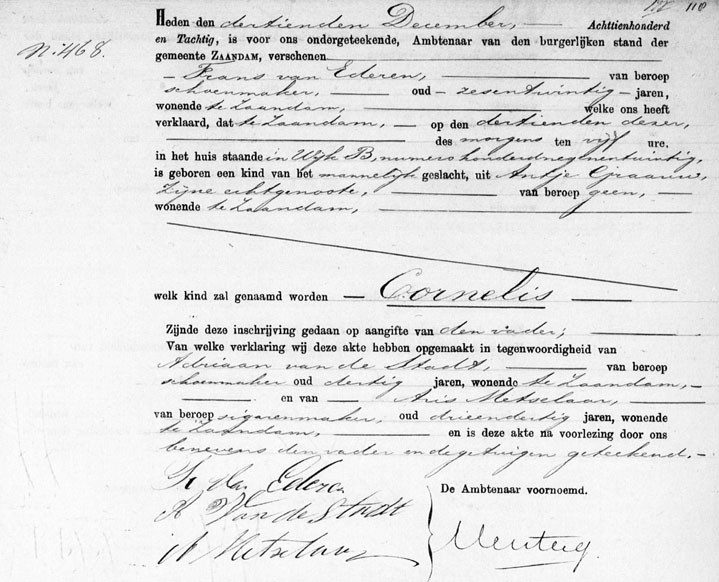 110
Heden den dertienden December, Achttienhonderd
No: 468.
en Tachtig, is voor ons ondergeteekende, Ambtenaar van den burgerlijken stand der
gemeente ZAANDAM, verschenen
Frans van Ederen, van beroep
schoenmaker, oud zesentwintig jaren,
wonende te Zaandam, welke ons heeft
verklaard, dat te Zaandam, op den dertienden dezer,
des morgens ten vijf ure,
in het huis staande in Wijk B, numero honderdnegenentwintig,
is geboren een kind van het mannelijk geslacht, uit Antje Graauw,
zijne echtgenoote, van beroep geen,
wonende te Zaandam,
welk kind zal genaamd worden Cornelis
Zijnde deze inschrijving gedaan op aangifte van den vader;
Van welke verklaring wij deze akte hebben opgemaakt in tegenwoordigheid van
Adriaan van de Stadt, van beroep
schoenmaker oud dertig jaren, wonende te Zaandam,
en van Aris Metselaar,
van beroep sigarenmaker, oud drieendertig jaren, wonende
te Zaandam, en is deze akte na voorlezing door ons
benevens den vader en de getuigen geteekend.
F. van Ederen
A Van de Stadt
A Metselaar
De Ambtenaar voornoemd.